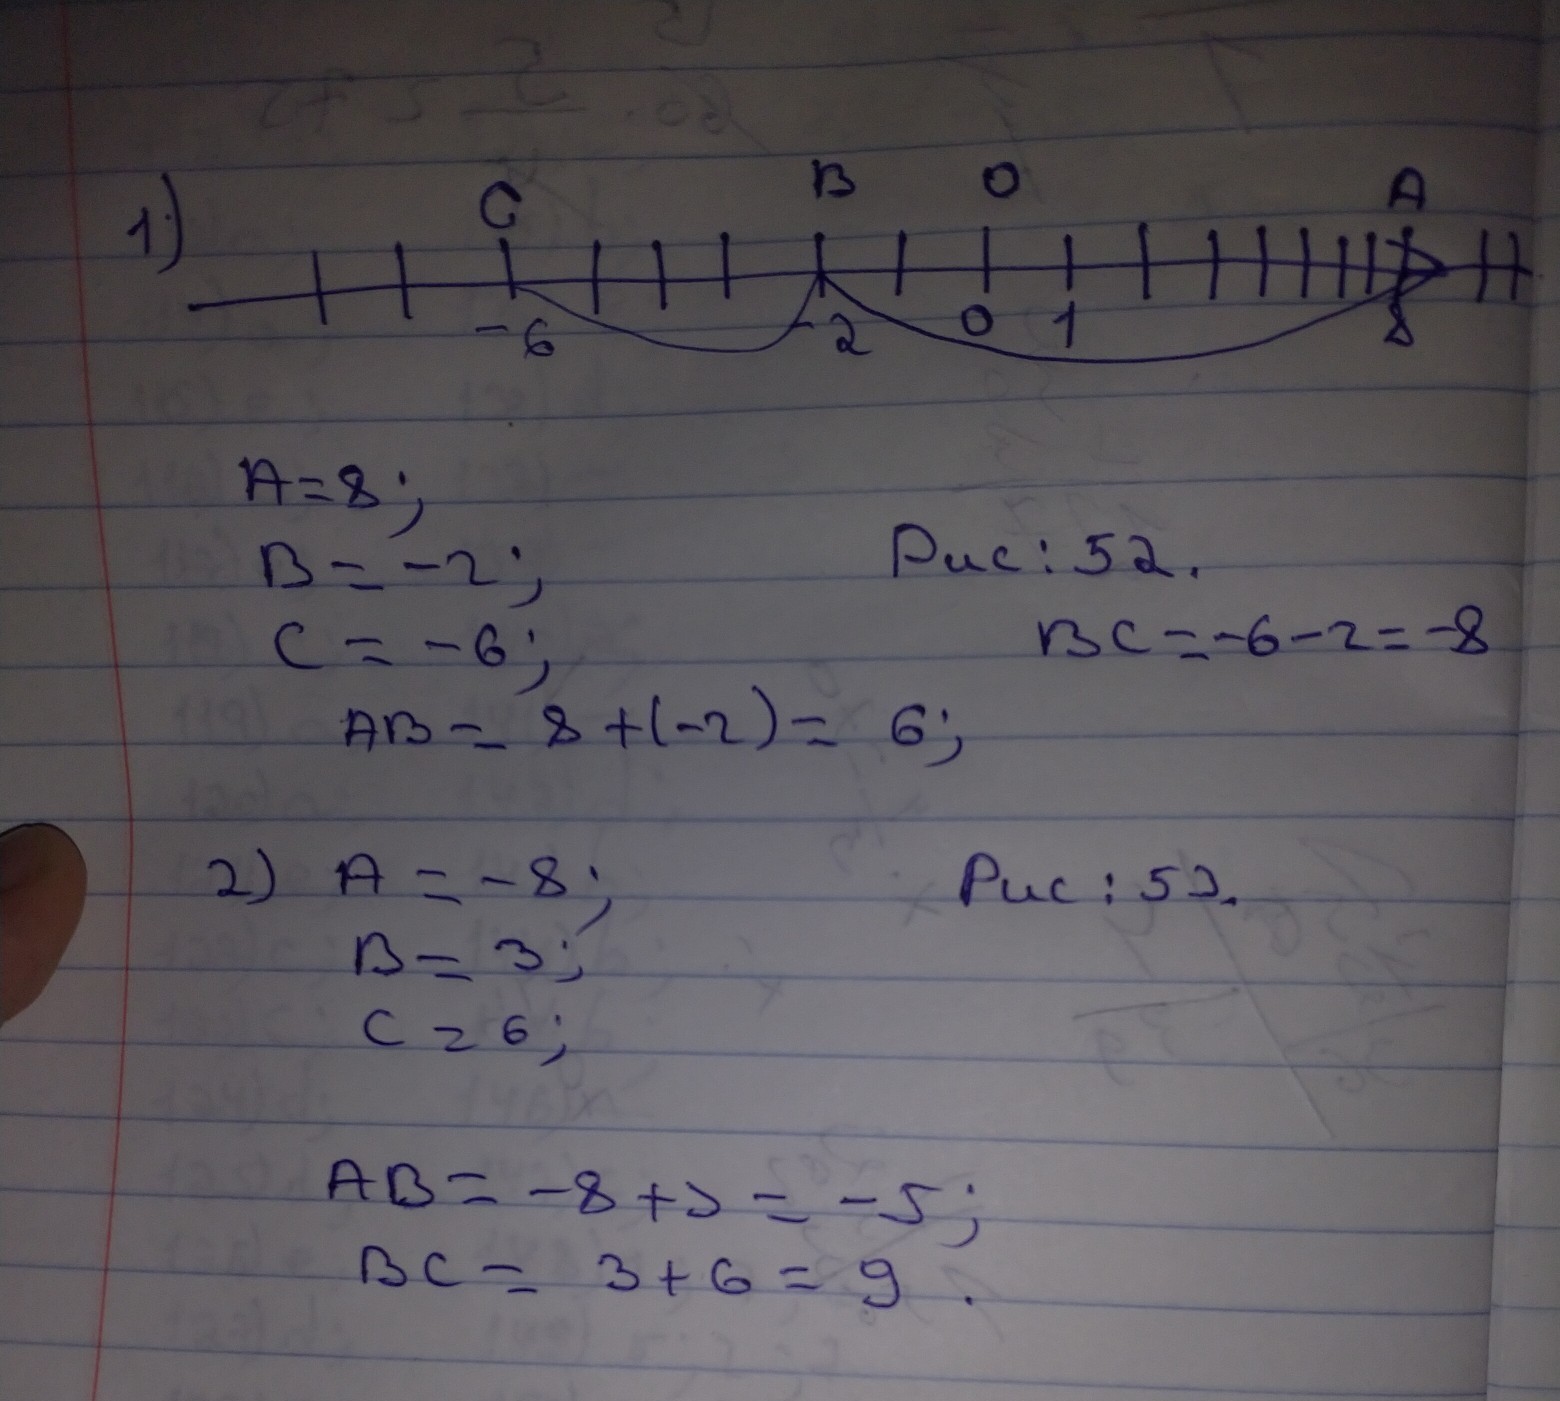 1)
C B O A
-6 -2 0 1 8
A=8;
B=-2;
Рис: 52.
C=-6;
BC=-6-2=-8
AB= 8+(-2)= 6;
2) A = -8;
Рис: 52.
B= 3;
C= 6;
AB= -8+3= -5;
BC= 3+6= 9.